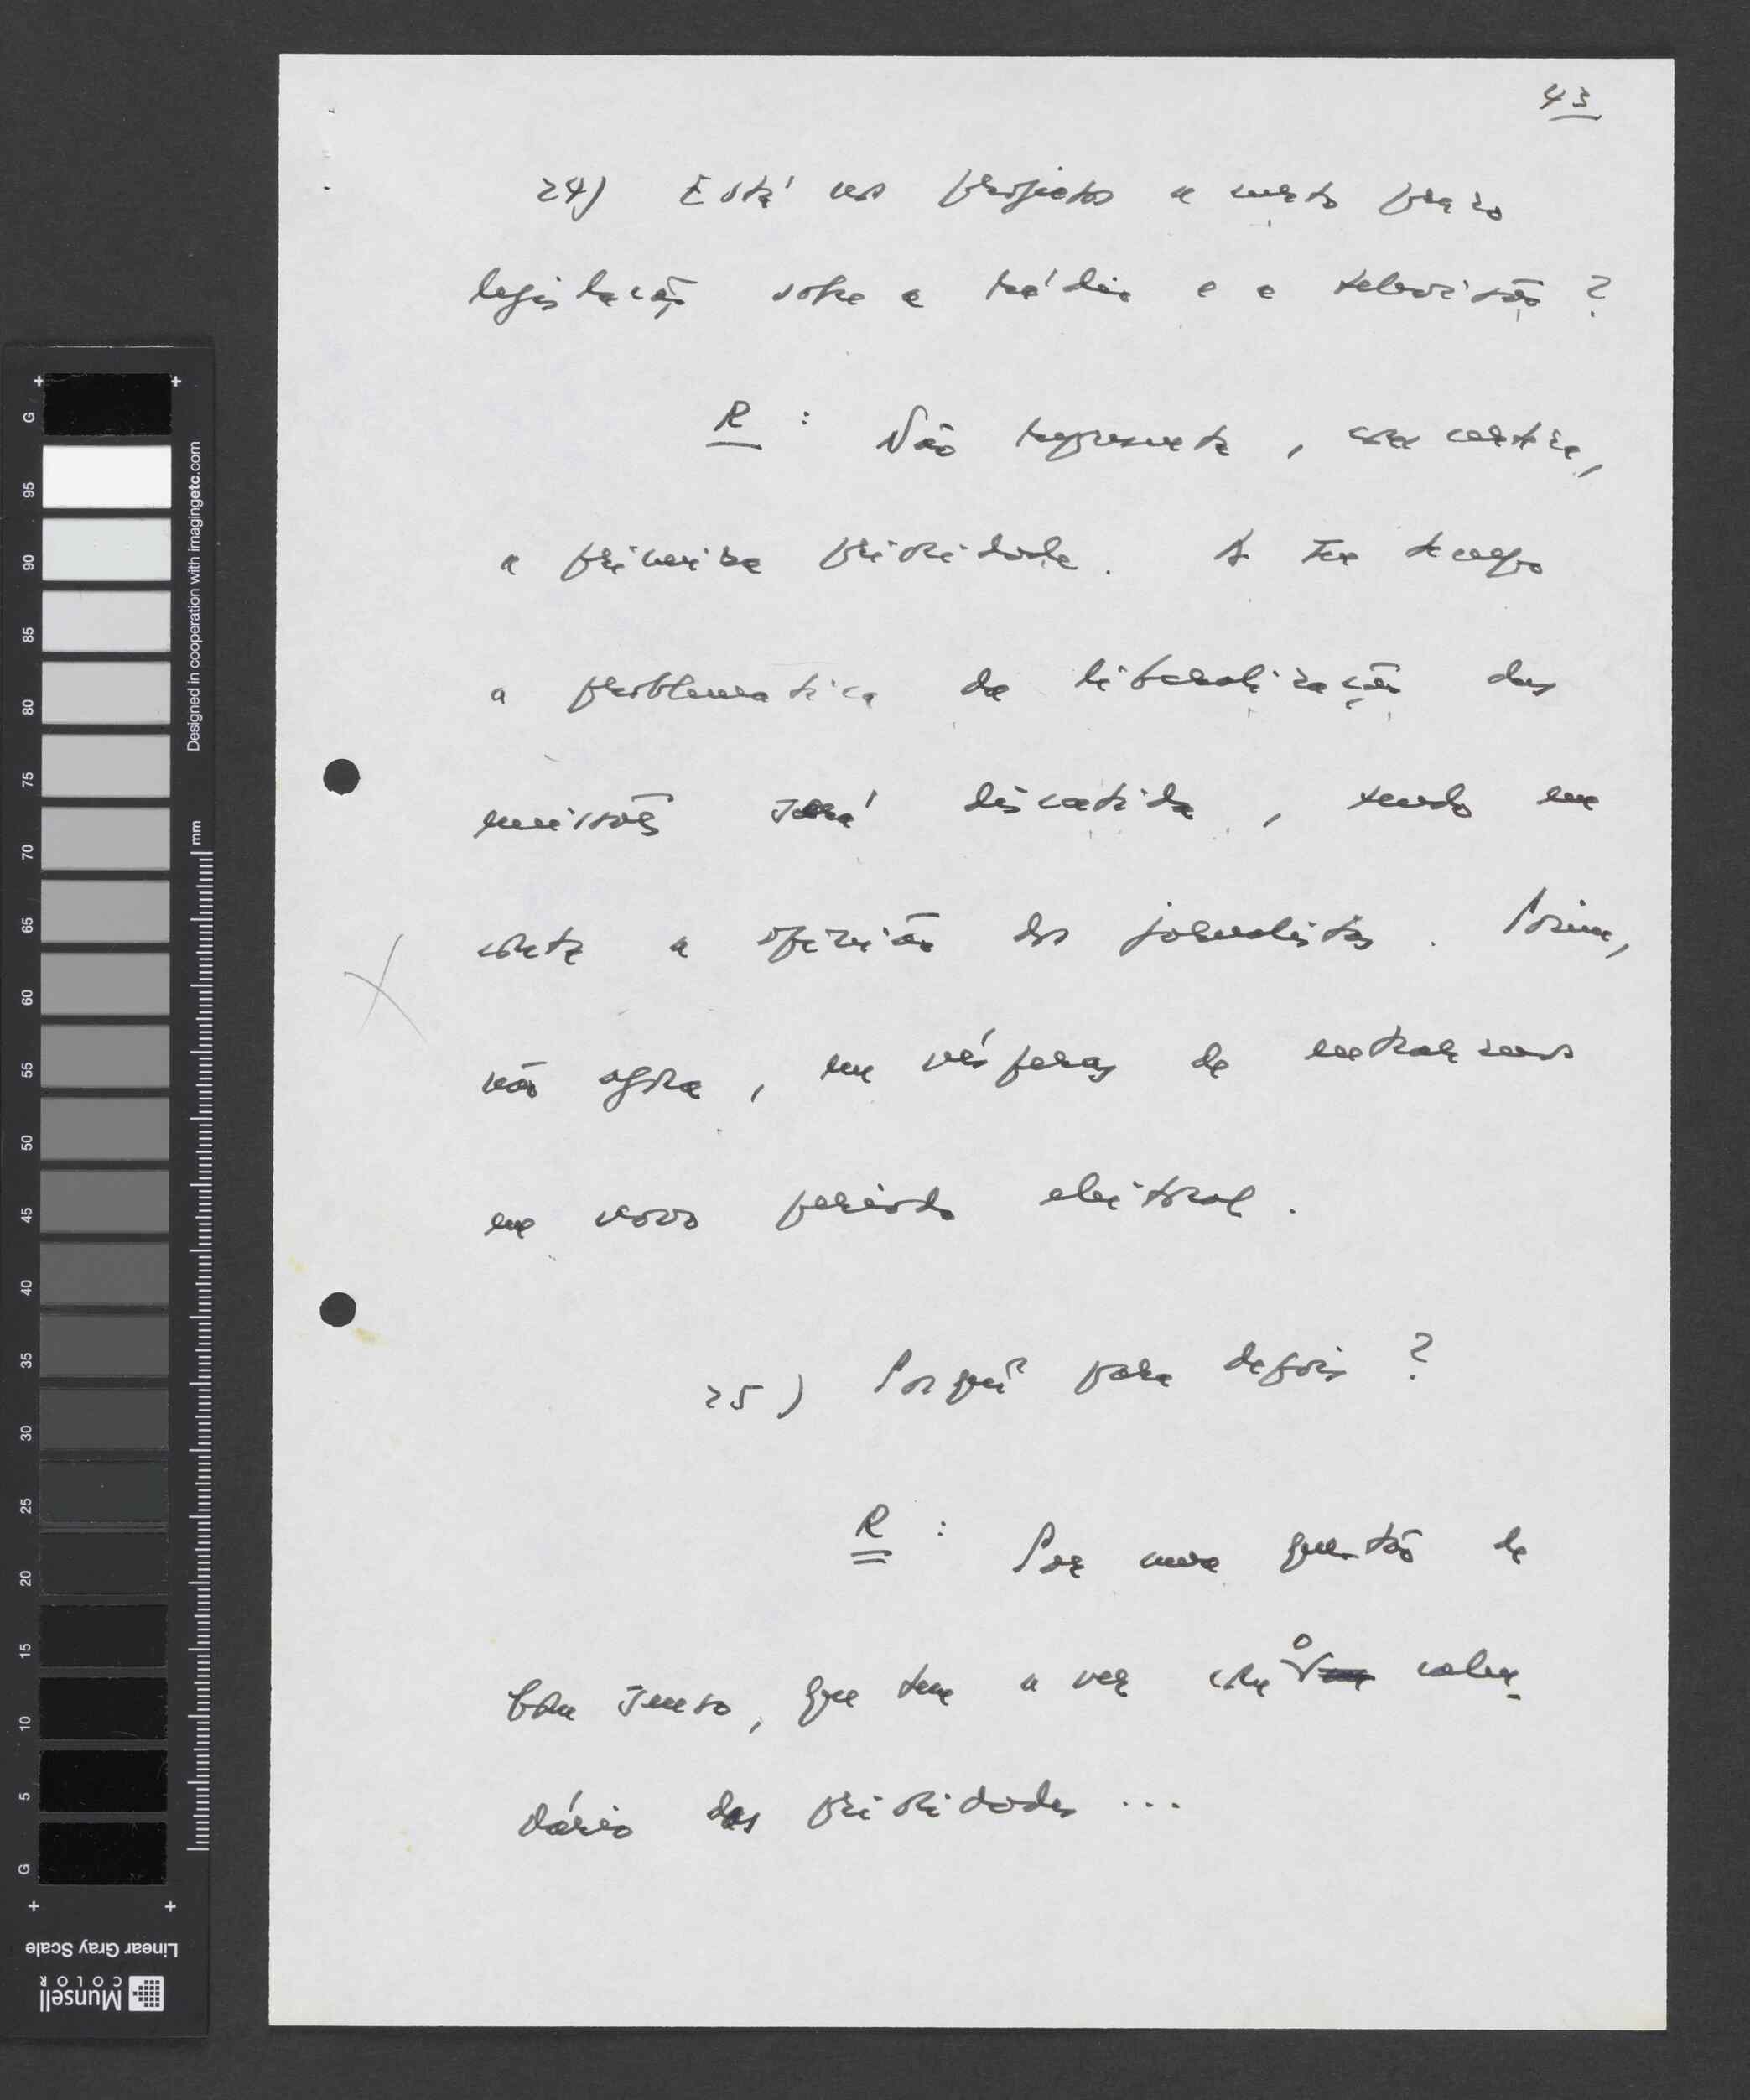 43
24) Está nos projectos a curto prazo
legislação sobre a rádio e a televisão ?
R : Não representa, com certeza,
a primeira prioridade. A seu tempo
a problematica da liberalização das
emissões será discutida, tendo em
conta a opinião dos jornalistas. Porém,
não agora, em vésperas de entrarmos
em novo período eleitoral.
25) Porquê para depois ?
R : Por uma questão de
bom senso, que tem a ver com o calen-
dário das prioridades ...
G
95
90
85
80
75
70
65
60
55
50
45
40
35
30
25
20
15
10
5
G
Designed in cooperation with imagingetc.com
mm
Linear Gray Scale
Munsell
COLOR